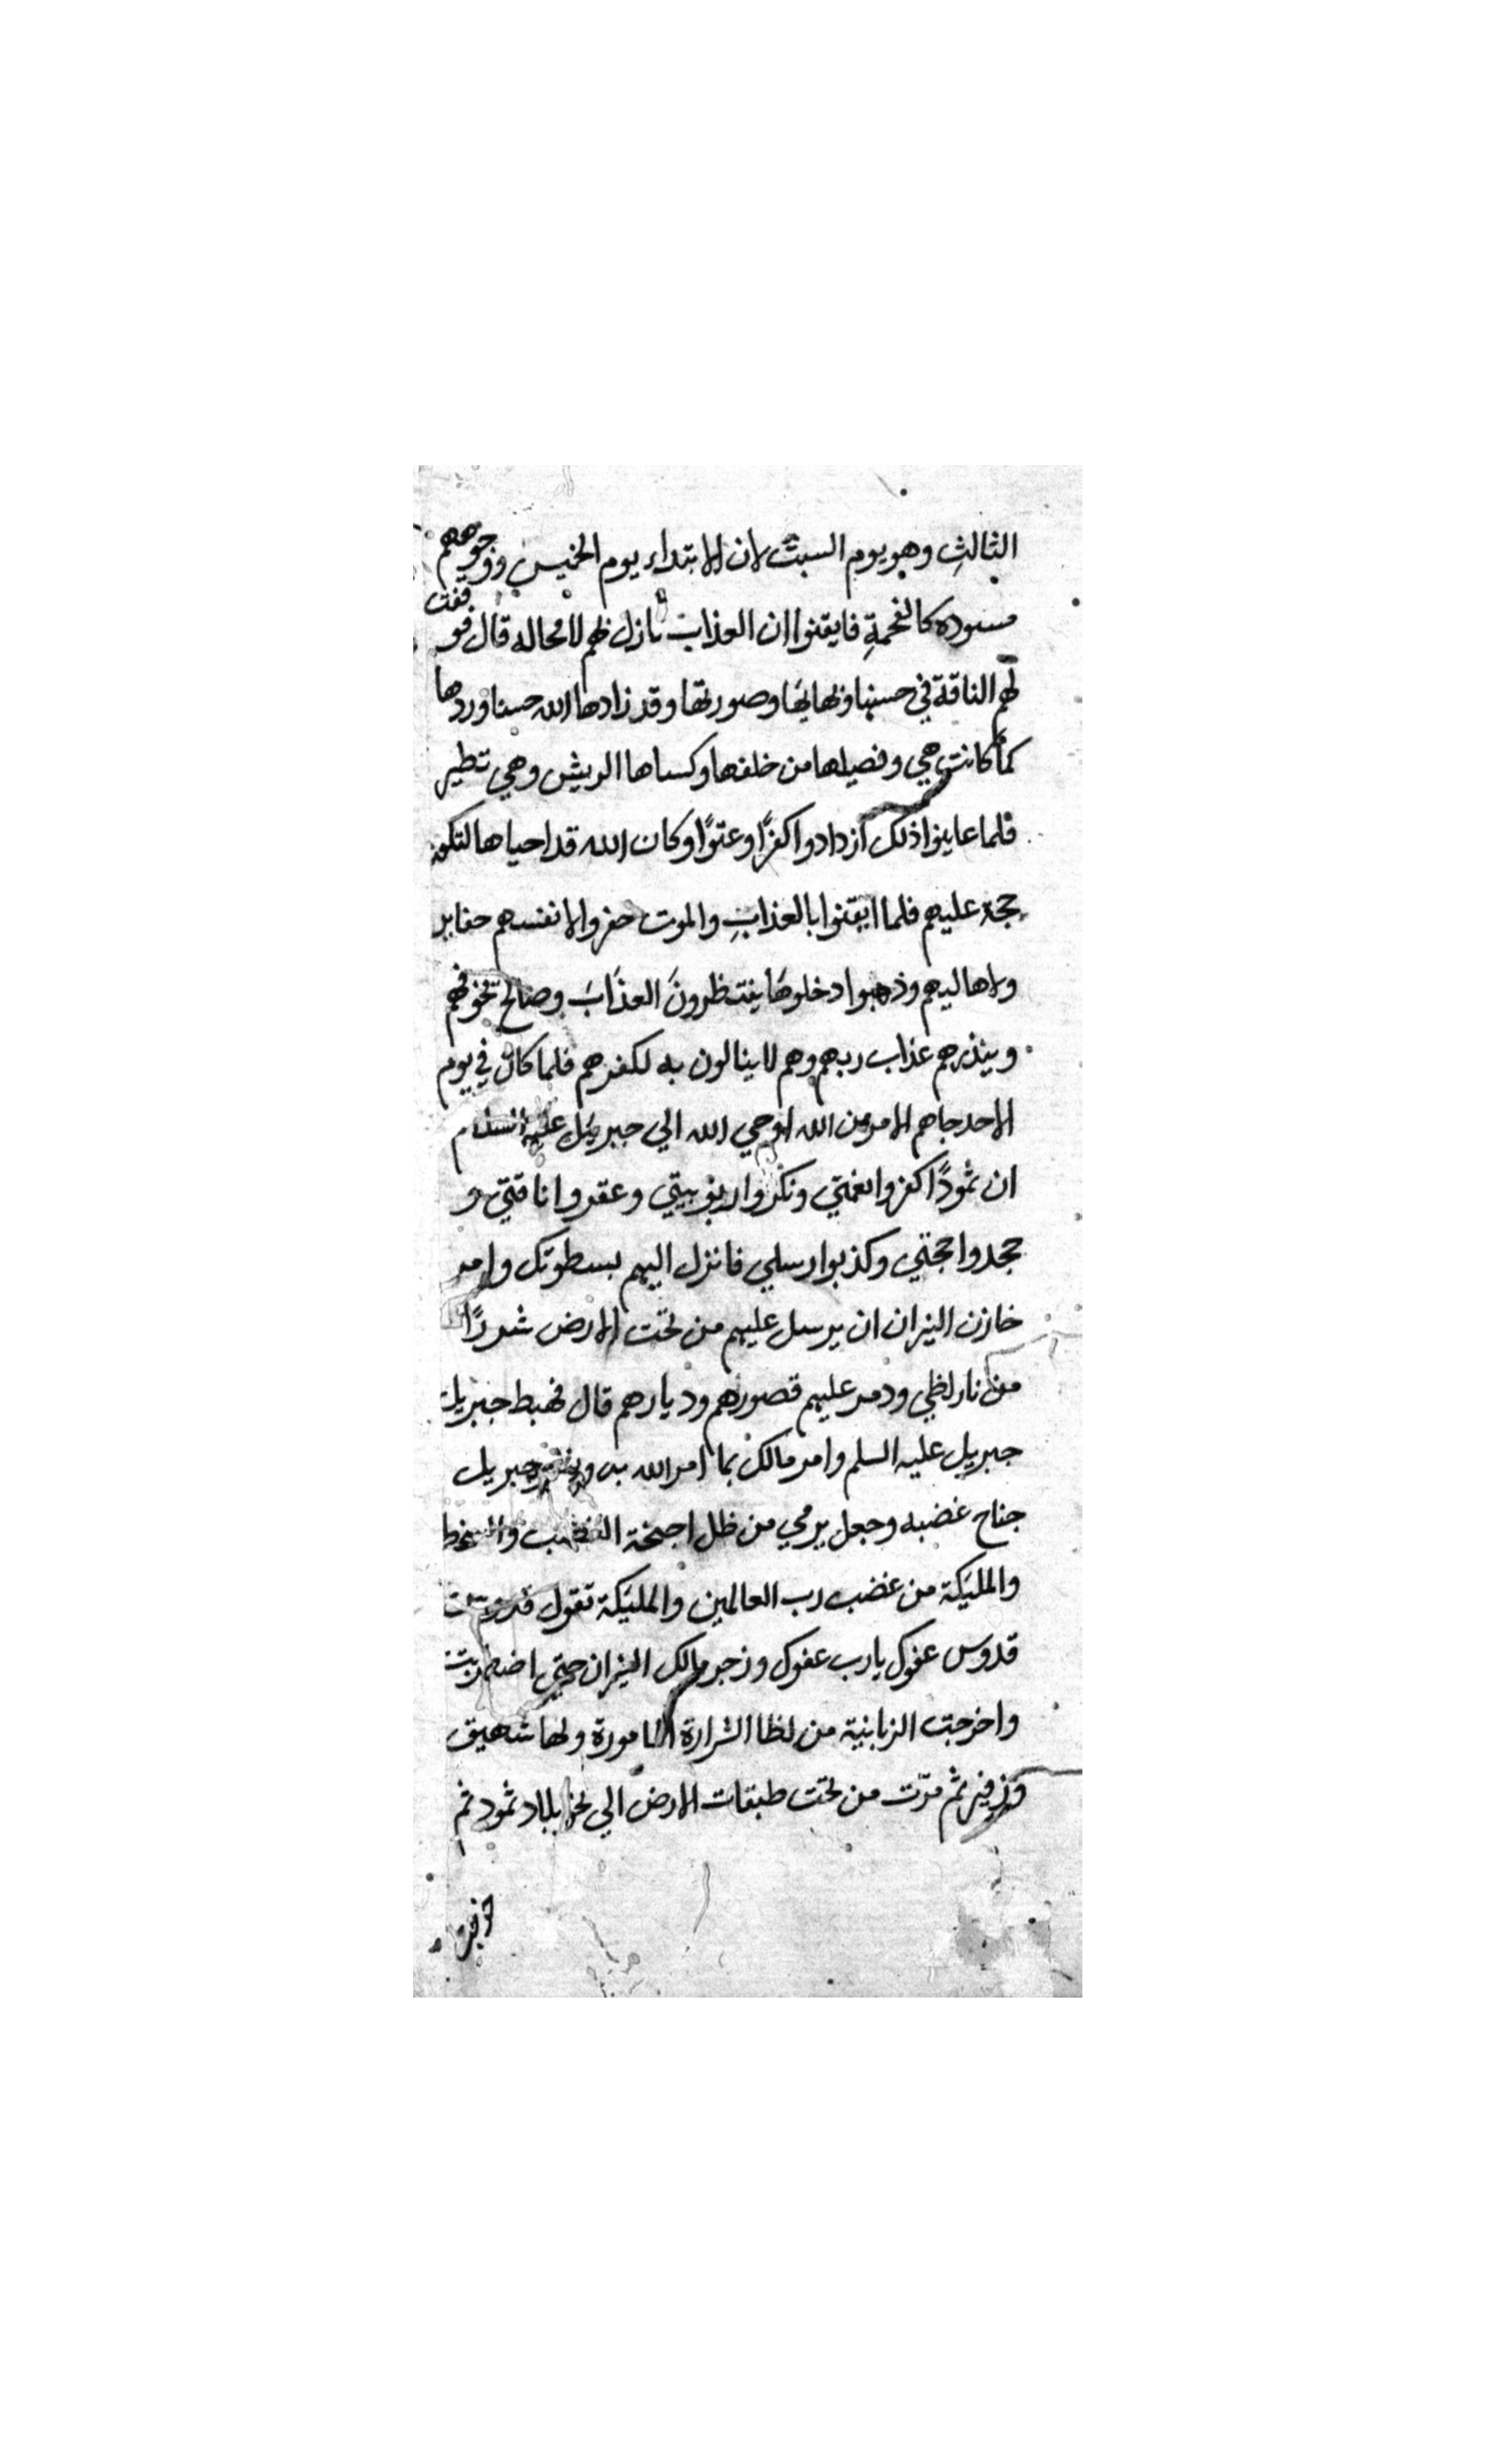 الثالثِ وهو يوم السبت لان الابتداء يوم الخميس ووجوههم
مسوده كالفحمةِ فايقنوا ان العذاب نازل بهم لا محاله قال فوقفت
لهم الناقة في حسنها وبهايها وصورتها وقد زادها الله حسنا وردها
كما كانت هي وفصيلها من خلفها وكساها الريش وهي تطير
فلما عاينوا ذلك ازدادوا كفرًا وعتوًا وكان الله قد احياها لتكون
حجة عليهم فلما ايقنوا بالعذابِ والموت حفروا لانفسهم حفاير
ولاهاليهم وذهبوا دخلوها ينتظرونَ العذَابَ وصالح يخوفهم
وينذرهم عذاب ربهم وهم لا ينالون به لكفرهم فلما كان في يوم
الاحد جاهم الامر من الله اوحي الله الي جبريل عليه السلام
ان ثمودًا كفروا نعمتي ونكروا ربوبيتي وعقروا ناقتي و
جحدوا حجتي وكذبوا رسلي فانزل اليهم بسطوتك وامر
خازن النيران ان يرسل عليهم من تحت الارض شررًا
من نار لظي ودمر عليهم قصورهم وديارهم قال فهبط جبريل
جبريل عليه السلم وامر مالك بما امر الله به جبريل
جناح غضبه وجعل يرمي من ظل اجنحة الغضب والسخط
والمليكة من غضب رب العالمين والمليكة تقول قدوس
قدوس عفوك يارب عفوك وزجر مالك النيران حتي اضطربت
واخرجت الزبانية من لظا الشرارة المامورة ولها شهيق
وزفير ثم مرّت من تحت طبقات الارض الي بلاد ثمود ثم